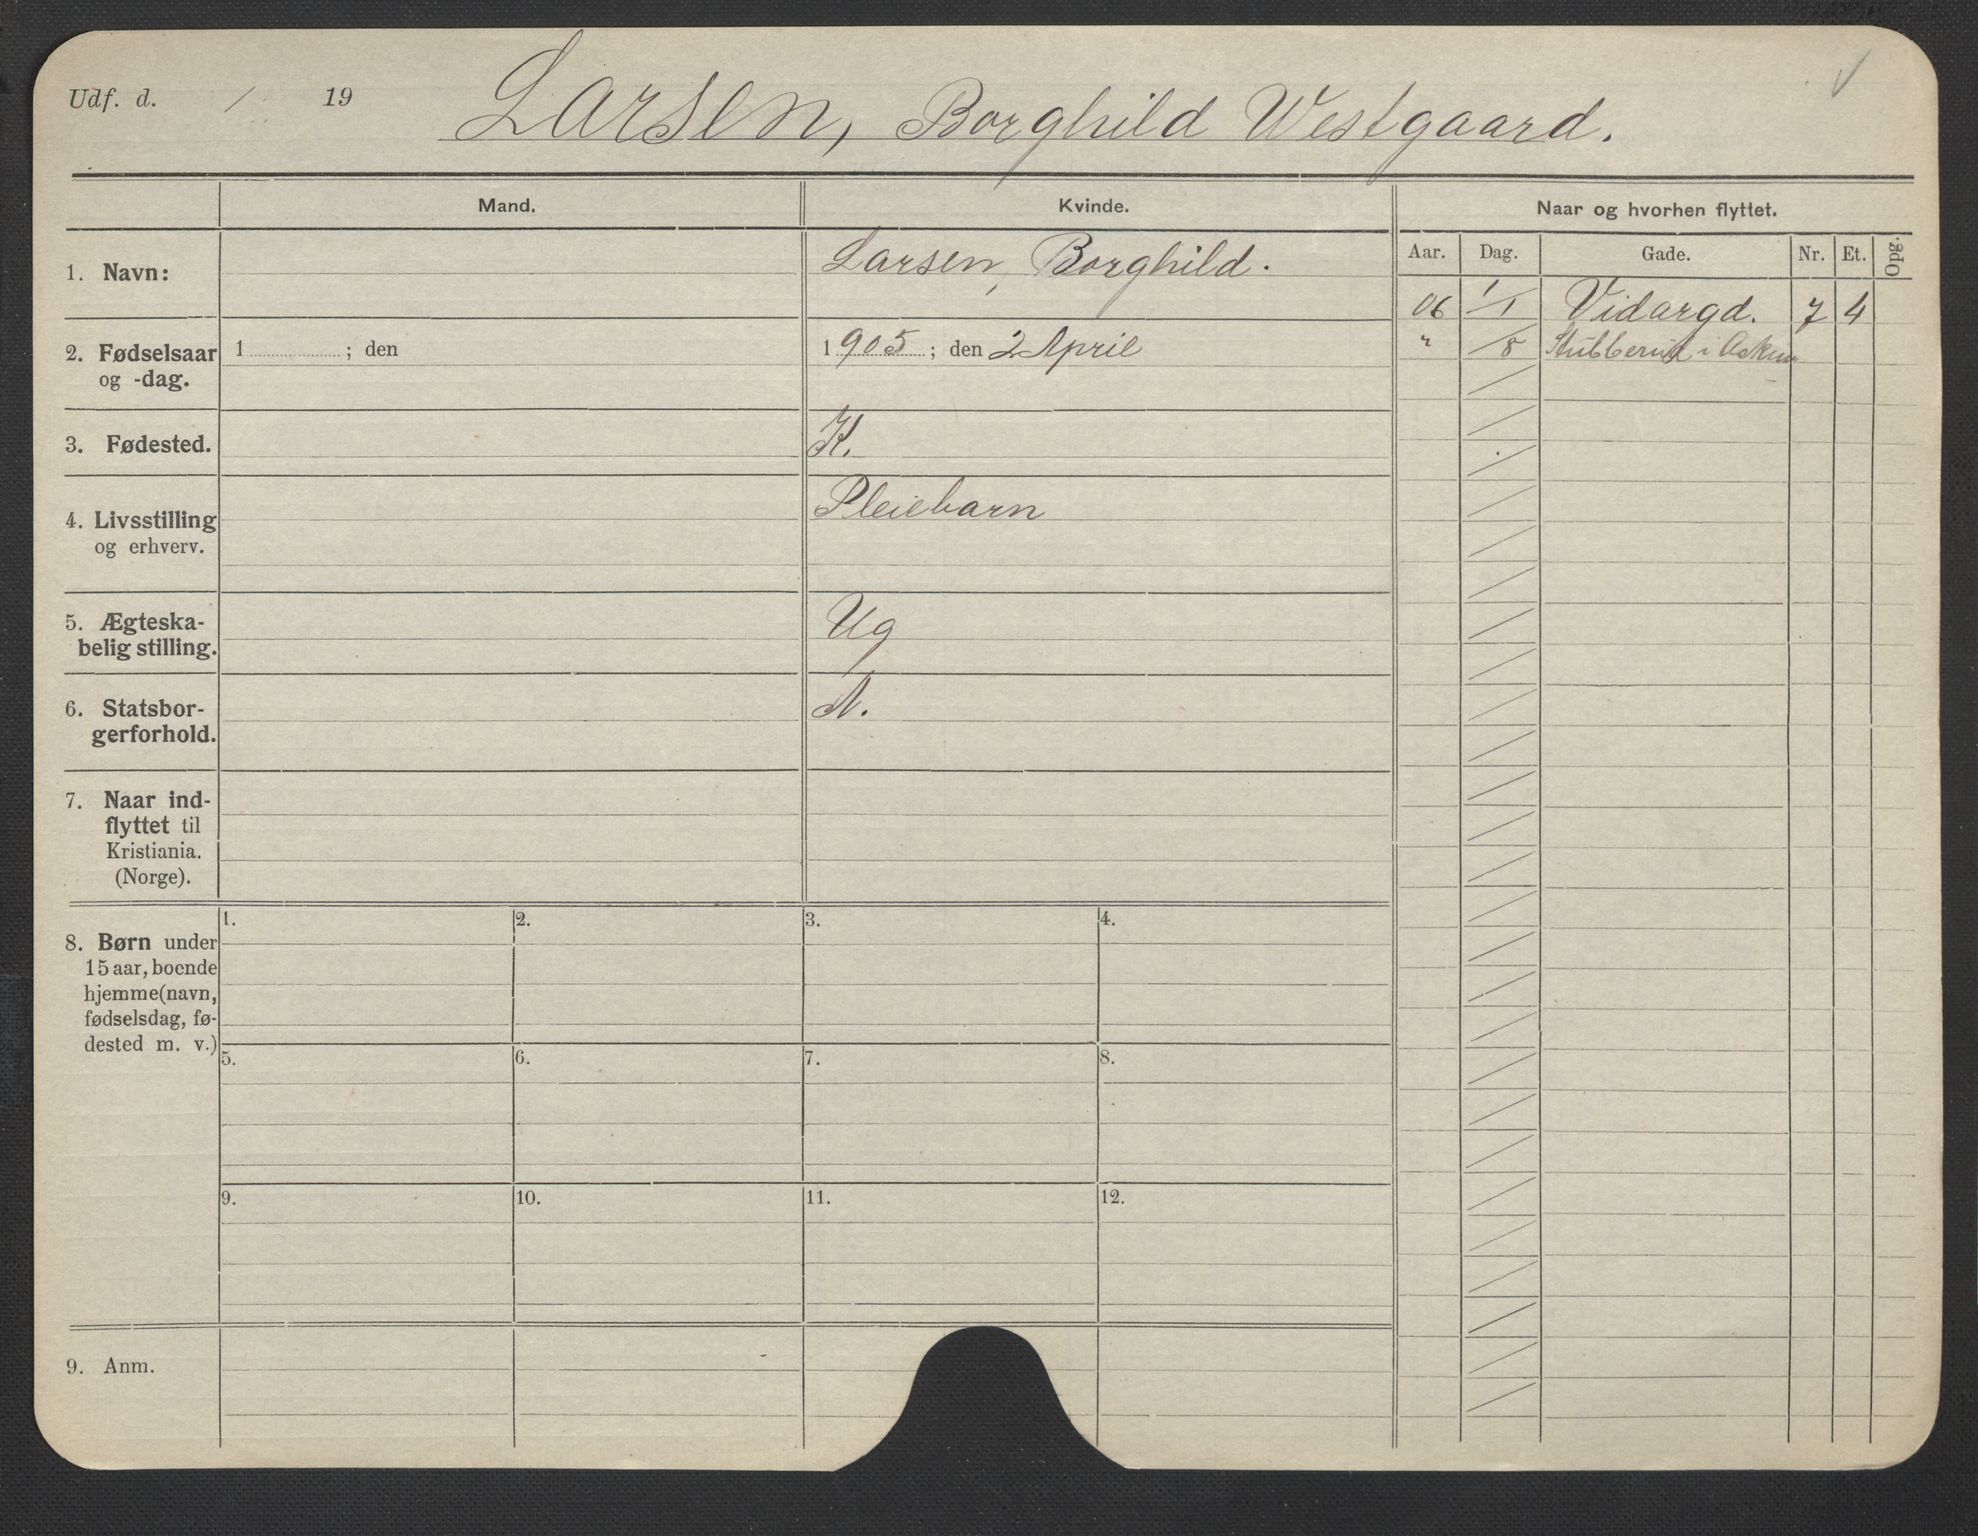 Udf. d. / 19
Larsen, Borghild Westgaard.
Mand.
Kvinde.
Naar og hvorhen flyttet.
Aar. Dag. Gade. Nr. Et. Opg.
1. Navn:
Larsen, Borghild.
06 1/1 Vidargd. 7 4
" /8 Stubberud i Askim
2. Fødselsaar
og -dag.
1 ; den
1905 ; den 2 April
3. Fødested.
K.
4. Livsstilling
og erhverv.
Pleiebarn
5. Ægteska-
belig stilling.
Ug
6. Statsbor-
gerforhold.
N.
7. Naar ind-
flyttet til
Kristiania.
(Norge).
8. Børn under
15 aar, boende
hjemme (navn,
fødselsdag, fø-
dested m. v.)
1. 2. 3. 4.
5. 6. 7. 8.
9. 10. 11. 12.
9. Anm.